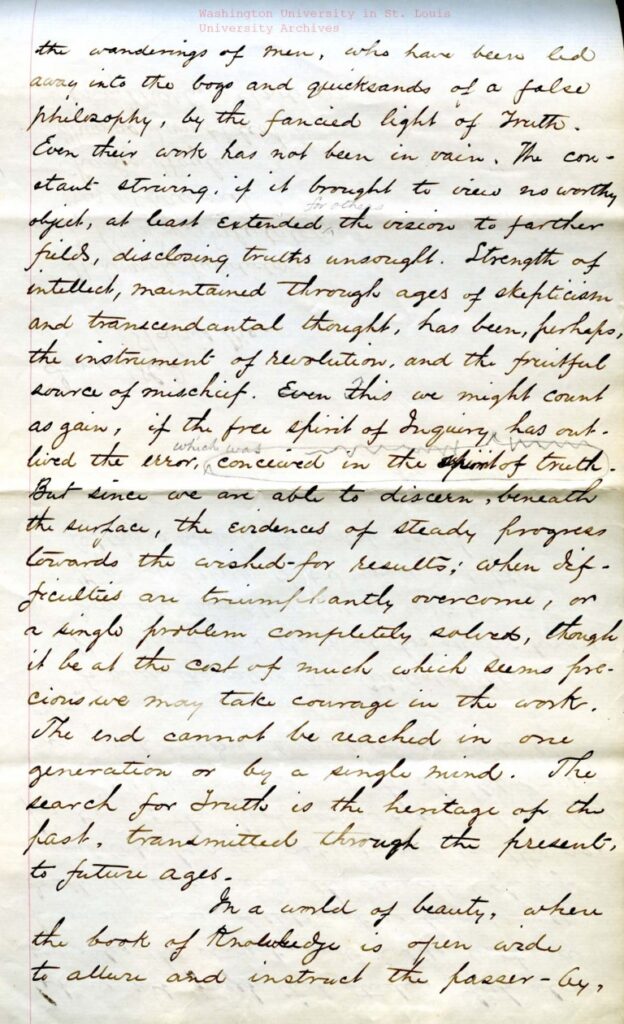 Washington University in St. Louis
University Archives
the wanderings of men, who have been led
away into the bogs and quicksands of a false
philosophy, by the fancied light of Truth.
Even their work has not been in vain. The con-
stant striving, if it brought to view no worthy
for others
object, at least extended the vision to farther
fields, disclosing truths unsought. Strength of
intellect, maintained through ages of skepticism
and transcendantal thought, has been, perhaps,
the instrument of revolution, and the fruitful
source of mischief. Even this we might count
as gain, if the free spirit of Inquiry has out-
which was
lived the error, conceived in the spirit of truth.
But since we are able to discern, beneath
the surface, the evidences of steady progress
towards the wished-for results; when dif-
ficulties are triumphantly overcome, or
a single problem completely solved, though
it be at the cost of much which seems pre-
cious we may take courage in the work.
The end cannot be reached in one
generation or by a single mind. The
search for Truth is the heritage of the
past, transmitted through the present,
to future ages.
In a world of beauty, where
the book of Knowledge is open wide
to allure and instruct the passer-by,